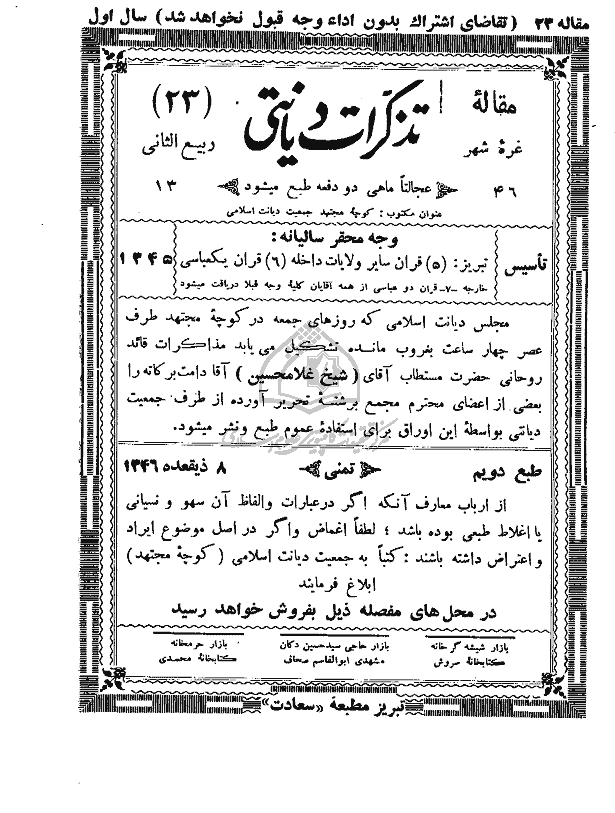 مقاله ۲۳ (تقاضای اشتراك بدون اداء وجه قبول نخواهد شد) سال اول
مقالهٔ تذكرات دیانتی (۲۳)
غرهٔ شهر ربیع الثانی
۴۶ عجالتاً ماهی دو دفعه طبع میشود ۱۳
عنوان مكتوب : كوچهٔ مجتهد جمعیت دیانت اسلامی
وجه محقر سالیانه :
تأسیس تبریز : (۵) قران سایر ولایات داخله (۶) قران یكعباسی ۱۳۴۵
خارجه -۷- قران دو عباسی از همه آقایان كلیهٔ وجه قبلا دریافت میشود
مجلس دیانت اسلامی كه روزهای جمعه در كوچهٔ مجتهد طرف
عصر چهار ساعت بغروب مانده تشكیل می یابد مذاكرات قائد
روحانی حضرت مستطاب آقای (شیخ غلامحسین) آقا دامت بركاته را
بعضی از اعضای محترم مجمع برشتهٔ تحریر آورده از طرف جمعیت
دیانتی بواسطهٔ این اوراق برای استفادهٔ عموم طبع ونشر میشود.
طبع دویم تمنی ۸ ذیقعده ۱۳۴۶
از ارباب معارف آنكه اگر درعبارات والفاظ آن سهو و نسیانی
یا اغلاط طبعی بوده باشد ؛ لطفاً اغماض واگر در اصل موضوع ایراد
و اعتراض داشته باشند : كتباً به جمعیت دیانت اسلامی (كوچهٔ مجتهد)
ابلاغ فرمایند
در محل های مفصله ذیل بفروش خواهد رسید
بازار شیشه گر خانه بازار حاجی سیدحسین دكان بازار حرمخانه
كتابخانهٔ سروش مشهدی ابوالقاسم صحاف كتابخانهٔ محمدی
تبریز مطبعهٔ «سعادت»